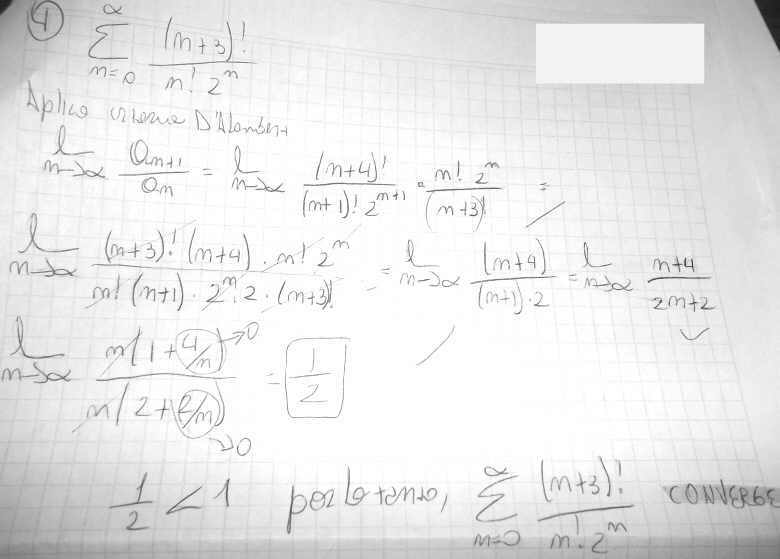 4) ∑_{n=0}^{∞} (n+3)! / (n! 2^n)
Aplico criterio D'Alembert
lim_{n→∞} a_{n+1} / a_n = lim_{n→∞} (n+4)! / ((n+1)! 2^{n+1}) · n! 2^n / (n+3)! =
lim_{n→∞} ((n+3)! (n+4) · n! 2^n) / (n! (n+1) · 2^n · 2 · (n+3)!) = lim_{n→∞} (n+4) / ((n+1)·2) = lim_{n→∞} (n+4) / (2n+2)
lim_{n→∞} n(1 + 4/n) / n(2 + 2/n) = 1/2
→0
→0
1/2 < 1 por lo tanto, ∑_{n=0}^{∞} (n+3)! / (n! · 2^n) CONVERGE